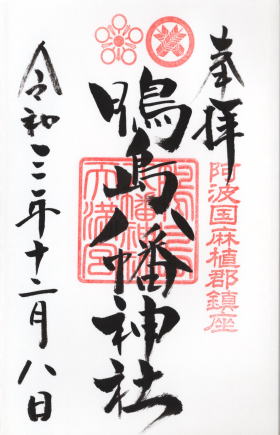 奉拝
阿波国麻植郡鎮座
鴨島八幡神社
令和三年十二月八日